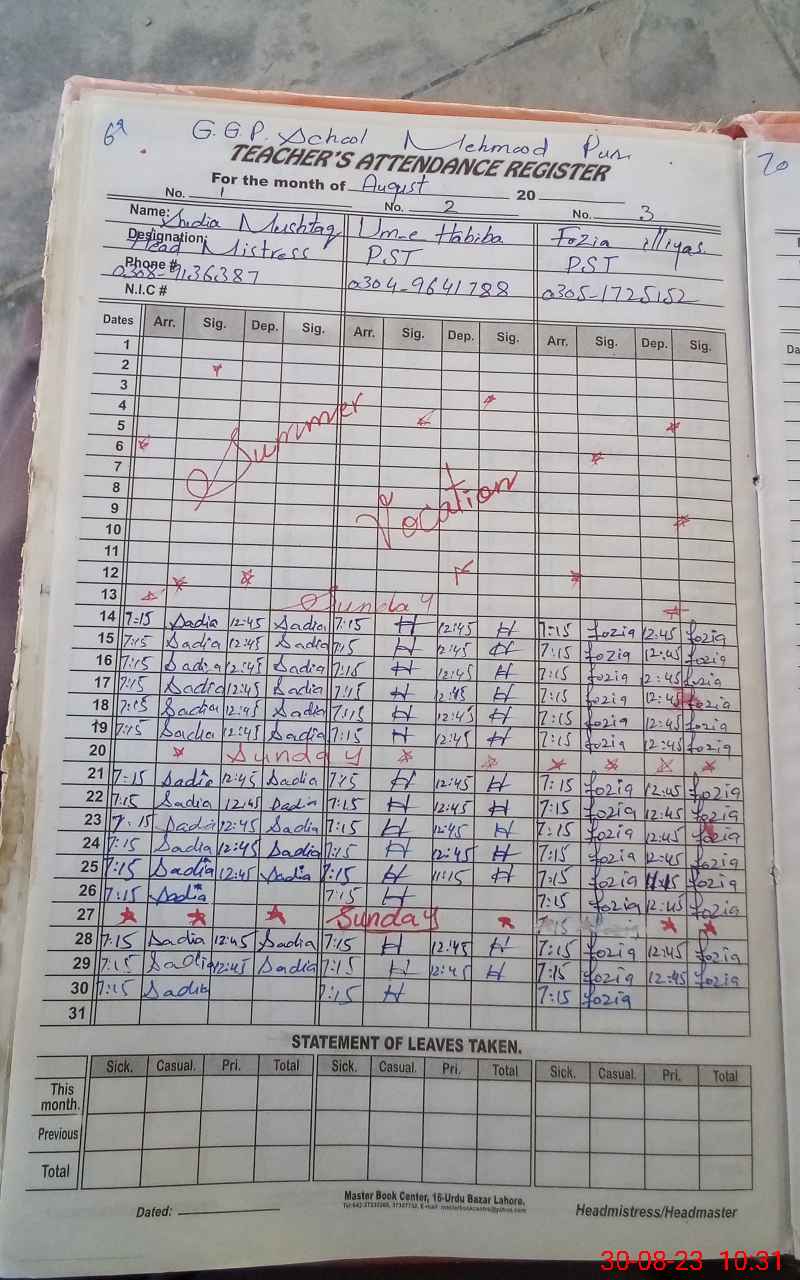 69
G.G.P. School Mehmood Pur
70
TEACHER'S ATTENDANCE REGISTER
For the month of August 20
No. 1 No. 2 No. 3
Name: Sadia Mushtaq Um-e Habiba Fozia illiyas.
Designation: Head Mistress PST PST
Phone # 0308-9136387 0304-9641788 0305-1725152
N.I.C #
Dates Arr. Sig. Dep. Sig. Arr. Sig. Dep. Sig. Arr. Sig. Dep. Sig.
1
2
3
4
5
6
7
8
9
10
11
12
Summer Vocation
13 Sunday
14 7:15 Sadia 12:45 Sadia 7:15 H 12:45 H 7:15 fozia 12:45 fozia
15 7:15 Sadia 12:45 Sadia 7:15 H 12:45 H 7:15 fozia 12:45 fozia
16 7:15 Sadia 12:45 Sadia 7:15 H 12:45 H 7:15 fozia 12:45 fozia
17 7:15 Sadia 12:45 Sadia 7:15 H 12:45 H 7:15 fozia 12:45 fozia
18 7:15 Sadia 12:45 Sadia 7:15 H 12:45 H 7:15 fozia 12:45 fozia
19 7:15 Sadia 12:45 Sadia 7:15 H 12:45 H 7:15 fozia 12:45 fozia
20 Sunday
21 7:15 Sadia 12:45 Sadia 7:15 H 12:45 H 7:15 fozia 12:45 fozia
22 7:15 Sadia 12:45 Sadia 7:15 H 12:45 H 7:15 fozia 12:45 fozia
23 7:15 Sadia 12:45 Sadia 7:15 H 12:45 H 7:15 fozia 12:45 fozia
24 7:15 Sadia 12:45 Sadia 7:15 H 12:45 H 7:15 fozia 12:45 fozia
25 7:15 Sadia 12:45 Sadia 7:15 H 11:15 H 7:15 fozia 11:15 fozia
26 7:15 Sadia 7:15 H 7:15 fozia 12:45 fozia
27 Sunday
28 7:15 Sadia 12:45 Sadia 7:15 H 12:45 H 7:15 fozia 12:45 fozia
29 7:15 Sadia 12:45 Sadia 7:15 H 12:45 H 7:15 fozia 12:45 fozia
30 7:15 Sadia 7:15 H 7:15 fozia
31
STATEMENT OF LEAVES TAKEN.
Sick. Casual. Pri. Total Sick. Casual. Pri. Total Sick. Casual. Pri. Total
This month.
Previous
Total
Dated:
Master Book Center, 16-Urdu Bazar Lahore.
Headmistress/Headmaster
30-08-23 10:31